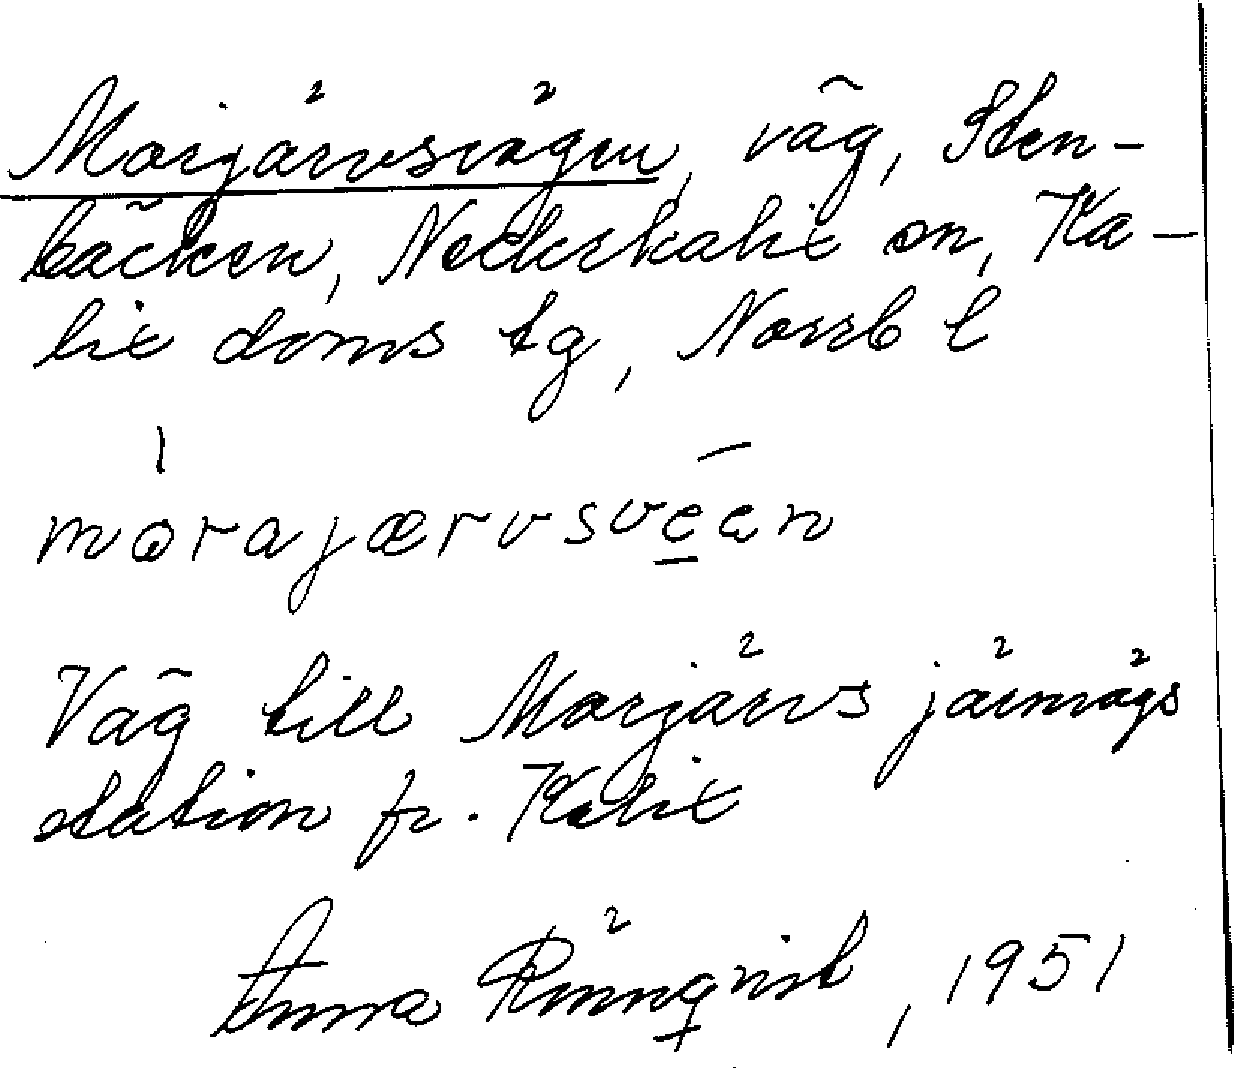 Morjärvsvägen, väg, Sten-
bäcken, Nederkalix sn, Ka-
lix doms tg, Norrb l
mòrajærvsvēen
Väg till Morjärvs järnvägs
station fr. Kalix
Anna Rönnqvist, 1951